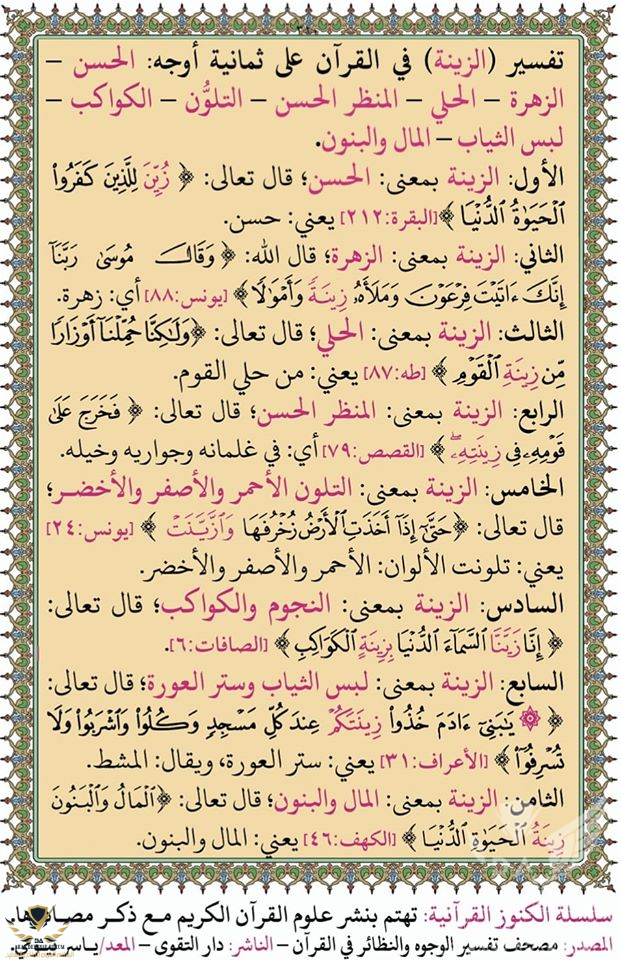 ٢١٠
تفسير (الزينة) في القرآن على ثمانية أوجه: الحسن –
الزهرة – الحلي – المنظر الحسن – التلوُّن – الكواكب –
لبس الثياب – المال والبنون.
الأول: الزينة بمعنى: الحسن؛ قال تعالى: ﴿ زُيِّنَ لِلَّذِينَ كَفَرُواْ
ٱلْحَيَوٰةُ ٱلدُّنْيَا ﴾ [البقرة:٢١٢] يعني: حسن.
الثاني: الزينة بمعنى: الزهرة؛ قال الله: ﴿ وَقَالَ مُوسَىٰ رَبَّنَآ
إِنَّكَ ءَاتَيْتَ فِرْعَوْنَ وَمَلَأَهُۥ زِينَةً وَأَمْوَٰلًا ﴾ [يونس:٨٨] أي: زهرة.
الثالث: الزينة بمعنى: الحلي؛ قال تعالى: ﴿ وَلَٰكِنَّا حُمِّلْنَآ أَوْزَارًا
مِّن زِينَةِ ٱلْقَوْمِ ﴾ [طه:٨٧] يعني: من حلي القوم.
الرابع: الزينة بمعنى: المنظر الحسن؛ قال تعالى: ﴿ فَخَرَجَ عَلَىٰ
قَوْمِهِۦ فِى زِينَتِهِۦۖ ﴾ [القصص:٧٩] أي: في غلمانه وجواريه وخيله.
الخامس: الزينة بمعنى: التلون الأحمر والأصفر والأخضر؛
قال تعالى: ﴿ حَتَّىٰٓ إِذَآ أَخَذَتِ ٱلْأَرْضُ زُخْرُفَهَا وَٱزَّيَّنَتْ ﴾ [يونس:٢٤]
يعني: تلونت الألوان: الأحمر والأصفر والأخضر.
السادس: الزينة بمعنى: النجوم والكواكب؛ قال تعالى:
﴿ إِنَّا زَيَّنَّا ٱلسَّمَآءَ ٱلدُّنْيَا بِزِينَةٍ ٱلْكَوَاكِبِ ﴾ [الصافات:٦].
السابع: الزينة بمعنى: لبس الثياب وستر العورة؛ قال تعالى:
﴿ ۞ يَٰبَنِىٓ ءَادَمَ خُذُواْ زِينَتَكُمْ عِندَ كُلِّ مَسْجِدٍ وَكُلُواْ وَٱشْرَبُواْ وَلَا
تُسْرِفُوٓاْ ﴾ [الأعراف:٣١] يعني: ستر العورة، ويقال: المشط.
الثامن: الزينة بمعنى: المال والبنون؛ قال تعالى: ﴿ ٱلْمَالُ وَٱلْبَنُونَ
زِينَةُ ٱلْحَيَوٰةِ ٱلدُّنْيَا ﴾ [الكهف:٤٦] يعني: المال والبنون.
سلسلة الكنوز القرآنية: تهتم بنشر علوم القرآن الكريم مع ذكر مصادرها.
المصدر: مصحف تفسير الوجوه والنظائر في القرآن – الناشر: دار التقوى – المعد/ياسر بيومى.